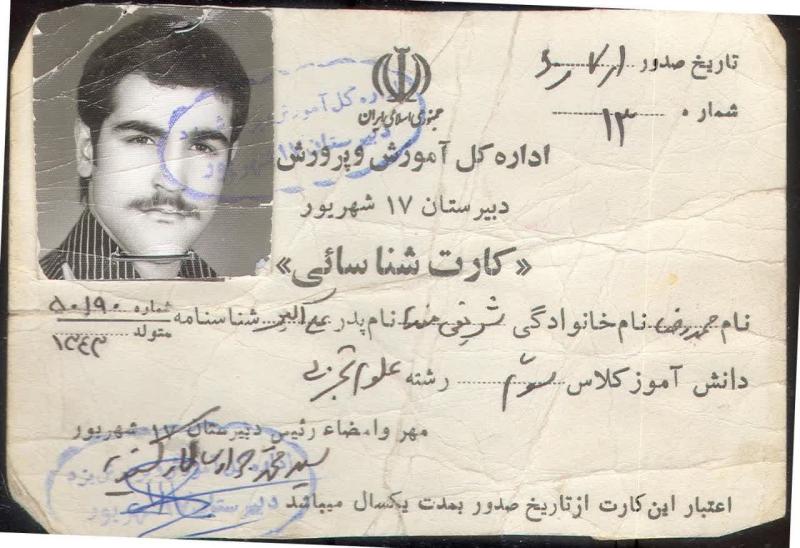 تاریخ صدور
شماره ۱۳
جمهوری اسلامی ایران
اداره کل آموزش و پرورش
دبیرستان ۱۷ شهریور
«کارت شناسائی»
نام حمیدرضا نام خانوادگی شریفی نام پدر علی اکبر شناسنامه شماره ۵۰۱۹۰
متولد ۱۳۴۳
دانش آموز کلاس سوم رشته علوم تجربی
مهر و امضاء رئیس دبیرستان ۱۷ شهریور
سید محمد جواد
اعتبار این کارت از تاریخ صدور بمدت یکسال میباشد
اداره کل آموزش
دبیرستان ۱۷ شهریور